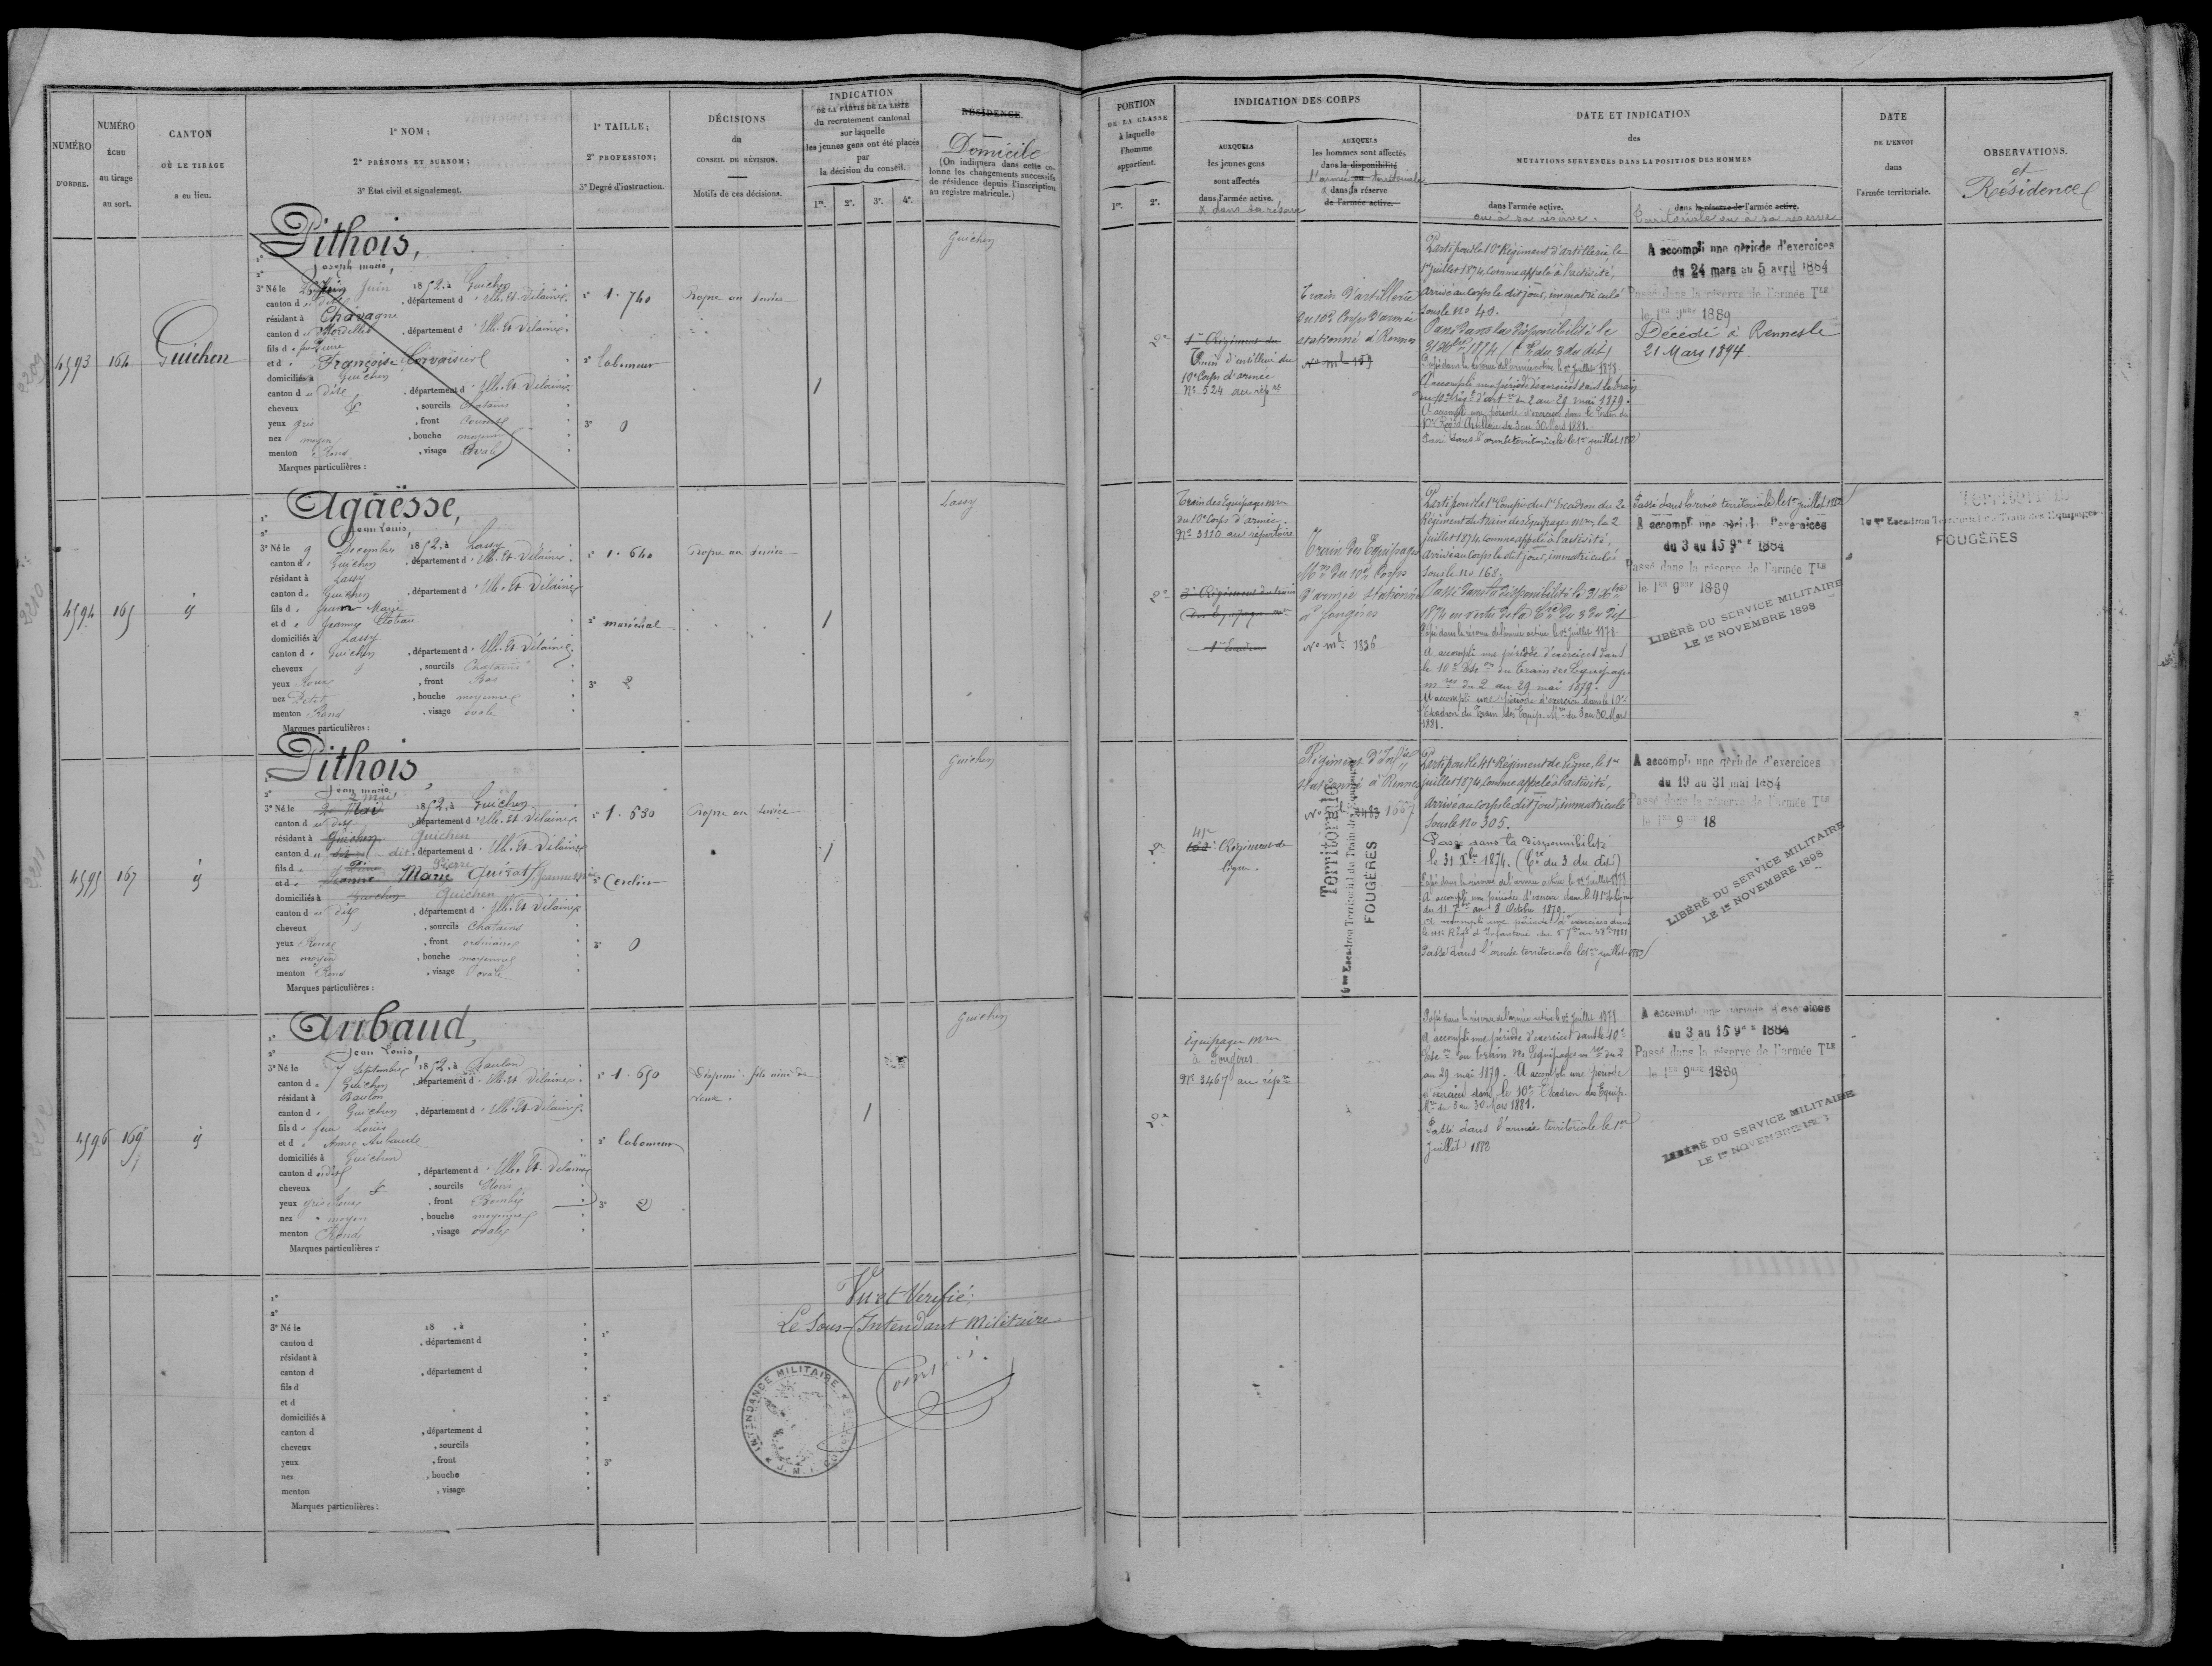 NUMÉRO D'ORDRE.
NUMÉRO ÉCHU au tirage au sort.
CANTON OÙ LE TIRAGE a eu lieu.
1° NOM;
2° PRÉNOMS ET SURNOM;
3° État civil et signalement.
1° TAILLE;
2° PROFESSION;
3° Degré d'instruction.
DÉCISIONS du CONSEIL DE RÉVISION.
Motifs de ces décisions.
INDICATION
DE LA PARTIE DE LA LISTE
du recrutement cantonal
sur laquelle
les jeunes gens ont été placés
par
la décision du conseil.
1re. 2e. 3e. 4e.
RÉSIDENCE.
Domicile
(On indiquera dans cette colonne les changements successifs de résidence depuis l'inscription au registre matricule.)
PORTION
DE LA CLASSE
à laquelle
l'homme
appartient.
1re. 2e.
INDICATION DES CORPS
AUXQUELS
les jeunes gens
sont affectés
dans l'armée active.
& dans sa réserve
AUXQUELS
les hommes sont affectés
dans la disponibilité
l'armée ou territoriale
& dans sa réserve
de l'armée active.
DATE ET INDICATION
des
MUTATIONS SURVENUES DANS LA POSITION DES HOMMES
dans l'armée active.
ou à sa réserve.
dans la réserve de l'armée active.
Territoriale ou à sa réserve
DATE
DE L'ENVOI
dans
l'armée territoriale.
OBSERVATIONS.
et
Résidence
4593 164 Guichen
Pithois,
Joseph marie,
3° Né le Juin 1852, à Guichen
canton d dit, département d'Ille-Et-Vilaine.
résidant à Chavagne
canton de Mordelles, département d'Ille-Et-Vilaine.
fils de feu Pierre
et de Françoise
domiciliés à Guichen
canton du dit, département d'Ille-Et-Vilaine.
cheveux &, sourcils Chatains
yeux gris, front
nez moyen, bouche moyenne
menton Rond, visage Ovale
Marques particulières :
1° 1.740
2° laboureur
3° 0
Propre au Service
1
Guichen
2e
1er Régiment de
Train d'artillerie du
10e Corps d'armée
N° 524 au rép re
Train d'artillerie
du 10e Corps d'armée
stationné à Rennes
No ml 159
Parti pour le 10e Régiment d'artillerie, le
1er juillet 1874, comme appelé à l'activité,
Arrivé au corps le dit jour, immatriculé
sous le no 40.
Passé dans la disponibilité le
31 Xbre 1874 (Cre du 3 du dit)
Passé dans la réserve de l'armée active le 1er juillet 1878
A accompli une période d'exercices dans le Train
du 10e Rég t d'art ie du 2 au 29 mai 1879.
A accompli une période d'exercices dans le Train du
10e Rég t Artillerie du 3 au 30 Mars 1881.
Passé dans l'armée territoriale le 1er juillet 1883
A accompli une période d'exercices
du 24 mars au 5 avril 1884
Passé dans la réserve de l'armée Tle
le 1er 9bre 1889
Décédé à Rennes le
21 Mars 1894.
4594 165 id
Agäësse,
Jean Louis,
3° Né le 9 Décembre 1852, à Lassy
canton de Guichen, département d'Ille-Et-Vilaine.
résidant à Lassy
canton de Guichen, département d'Ille-Et-Vilaine
fils de Jean Marie
et de Jeanne
domiciliés à Lassy
canton de Guichen, département d'Ille-Et-Vilaine.
cheveux &, sourcils Chatains
yeux Roux, front Bas
nez Petit, bouche moyenne
menton Rond, visage ovale
Marques particulières :
1° 1.640
2° maréchal
3° 2
Propre au Service
1
Lassy
2e
Train des Equipages mres
du 10e Corps d'armée.
N° 3110 au répertoire
3e Régiment du train
des Equipages mres
Train des Equipages
Mres du 10e Corps
d'armée stationné
à fougères
No ml 1836
Parti pour la 1re Compie du 1er Escadron du 2e
Régiment du train des Equipages mres, le 2
juillet 1874, comme appelé à l'activité,
Arrivé au corps le dit jour, immatriculé
sous le no 168.
Passé dans la disponibilité le 31 Xbre
1874 en vertu de la Cre du 3 du dit
Passé dans la réserve de l'armée active le 1er juillet 1878
A accompli une période d'exercices dans
le 10e Esc on du Train des Equipages
mres du 2 au 29 mai 1879.
A accompli une période d'exercices dans le 10e
Escadron du Train des Equip. Mres du 3 au 30 Mars
1881.
Passé dans l'armée territoriale le 1er juillet 1883
A accompli une période d'exercices
du 3 au 15 9bre 1884
Passé dans la réserve de l'armée Tle
le 1er 9bre 1889
LIBÉRÉ DU SERVICE MILITAIRE
LE 1er NOVEMBRE 1898
Territoriale
Escadron Territorial du Train des Equipages
FOUGÈRES
4595 167 id
Pithois,
Jean marie,
2 Mai
3° Né le 2 Mai 1852, à Guichen
canton du dit, département d'Ille-Et-Vilaine.
résidant à Guichen Guichen
canton du dit dit, département d'Ille-Et-Vilaine
fils de Pierre Pierre
et de Jeanne Marie Jeanne
domiciliés à Guichen Guichen
canton du dit, département d'Ille-Et-Vilaine
cheveux, sourcils Chatains
yeux Roux, front ordinaire
nez moyen, bouche moyenne
menton Rond, visage ovale
Marques particulières :
1° 1.530
2°
3° 0
Propre au Service
1
Guichen
2e
41e
Régiment de
ligne.
Régiment d'Inf ie
stationné à Rennes
Territoriale
16me Escadron Territorial du Train des Equipages
FOUGÈRES
Parti pour le 41e Régiment de ligne, le 1er
juillet 1874, comme appelé à l'activité,
Arrivé au corps le dit jour, immatriculé
sous le no 305.
Passé dans la disponibilité
le 31 Xbre 1874. (Cre du 3 du dit)
Passé dans la réserve de l'armée active le 1er juillet 1878
A accompli une période d'exercices dans le 41e de ligne
du 11 7bre au 8 Octobre 1879.
A accompli une période d'exercices dans
Passé dans l'armée territoriale le 1er juillet 1883
A accompli une période d'exercices
du 19 au 31 mai 1884
Passé dans la réserve de l'armée Tle
le 1er 9 18
LIBÉRÉ DU SERVICE MILITAIRE
LE 1er NOVEMBRE 1898
4596 169 id
Aubaud,
Jean Louis,
3° Né le 7 Septembre 1852, à Baulon
canton de Guichen, département d'Ille-Et-Vilaine.
résidant à Baulon
canton de Guichen, département d'Ille-Et-Vilaine.
fils de feu Louis
et de Anne Aubaude
domiciliés à Guichen
canton du dit, département d'Ille-Et-Vilaine
cheveux &, sourcils Noirs
yeux gris Roux, front Bombé
nez moyen, bouche moyenne
menton Rond, visage ovale
Marques particulières :
1° 1.650
2° laboureur
3° 2
Dispensé. fils ainé de
veuve.
1
Guichen
2e
Equipages mres
à Fougères
N° 3467 au rép re
Passé dans la réserve de l'armée active le 1er juillet 1878
A accompli une période d'exercices dans le 10e
Esc on du Train des Equipages mres du 2
au 29 mai 1879. A accompli une période
d'exercices dans le 10e Escadron des Equip.
Mres du 3 au 30 Mars 1881.
Passé dans l'armée territoriale le 1er
Juillet 1883
A accompli une période d'exercices
du 3 au 15 9bre 1884
Passé dans la réserve de l'armée Tle
le 1er 9bre 1889
LIBÉRÉ DU SERVICE MILITAIRE
LE 1er NOVEMBRE
1°
2°
3° Né le 18 , à
canton d , département d
résidant à
canton d , département d
fils d
et d
domiciliés à
canton d , département d
cheveux , sourcils
yeux , front
nez , bouche
menton , visage
Marques particulières :
1°
2°
3°
Vu et Vérifié:
Le Sous-Intendant Militaire
INTENDANCE MILITAIRE